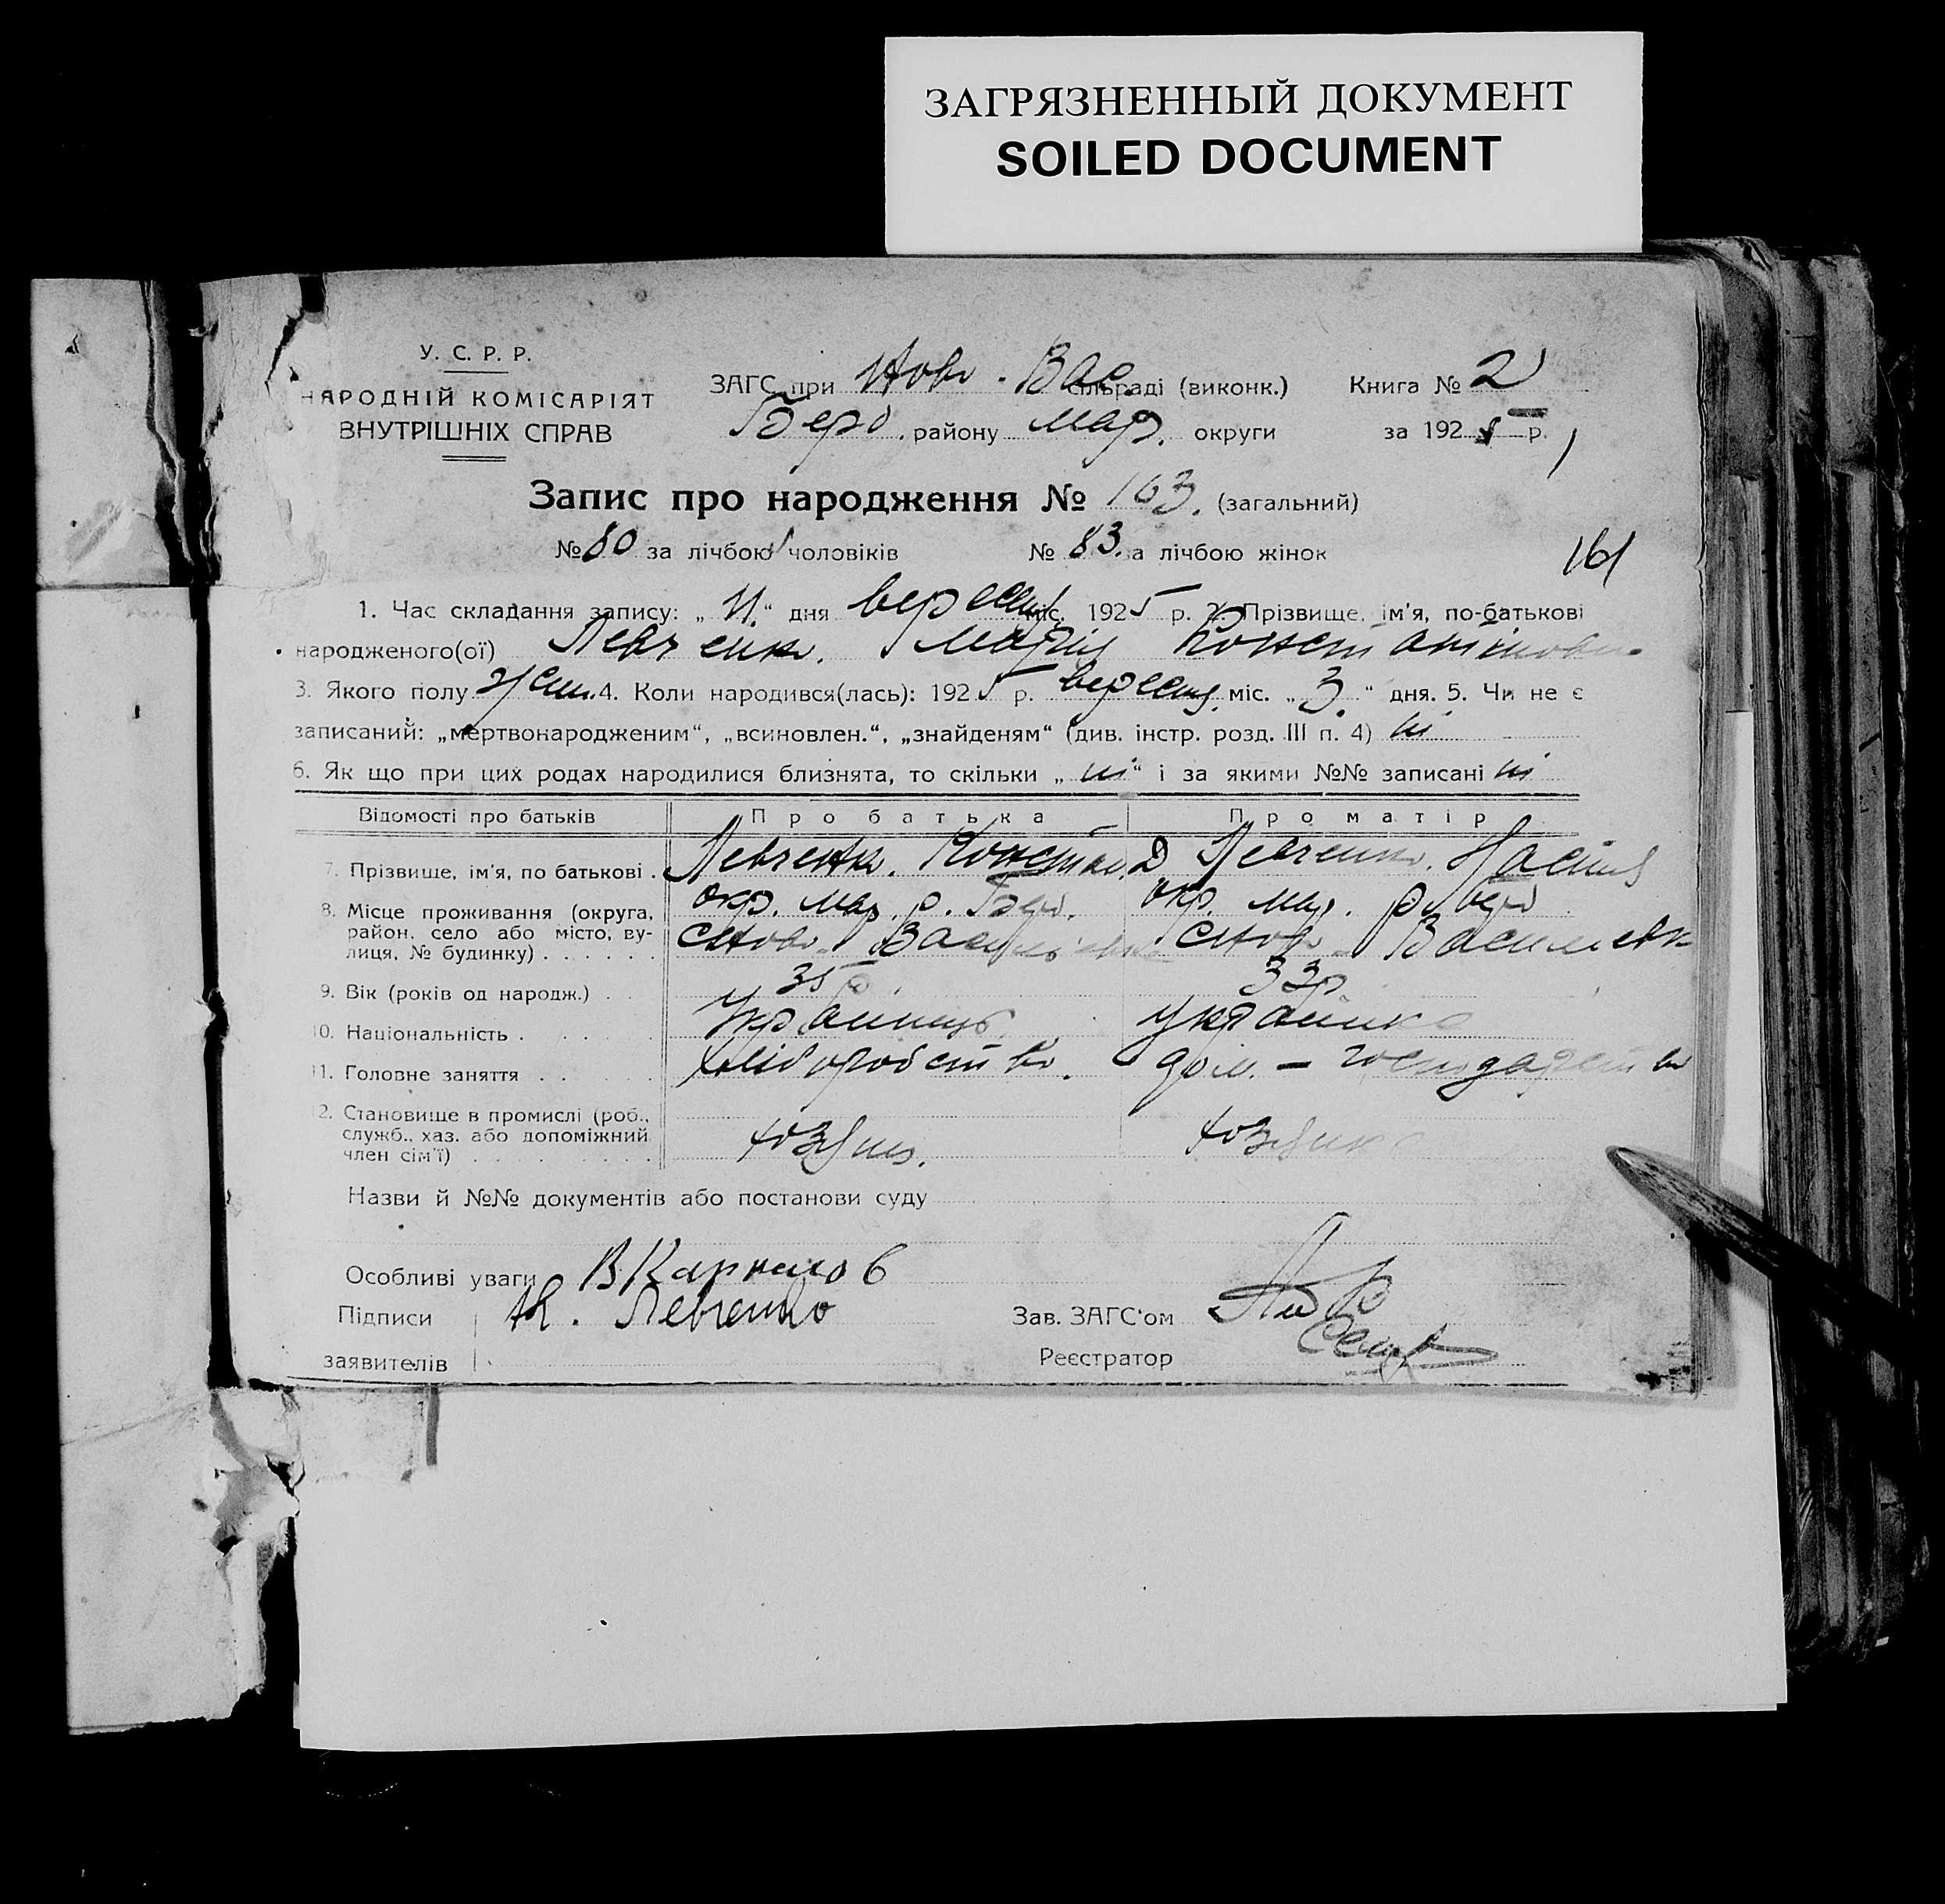 ЗАГРЯЗНЕННЫЙ ДОКУМЕНТ
SOILED DOCUMENT
У. С. Р. Р.
НАРОДНІЙ КОМІСАРІЯТ
ВНУТРІШНІХ СПРАВ
ЗАГС при Ново-Вас. сільраді (виконк.) Книга № 2
Беро. району Мар. округи за 1925 р.
Запис про народження № 163. (загальний)
№ 80 за лічбою чоловіків № 83. за лічбою жінок
161
1. Час складання запису: „11.“ дня вересня міс. 1925 р. 2. Прізвище, ім'я, по-батькові
народженого(ої) Левченко. Марія Константінова
3. Якого полу жен. 4. Коли народився(лась): 1925 р. вересня міс. „3.“ дня. 5. Чи не є
записаний: „мертвонародженим“, „всиновлен.“, „знайденям“ (див. інстр. розд. III п. 4) ні
6. Як що при цих родах народилися близнята, то скільки „ні“ і за якими №№ записані ні
Відомості про батьків Про батька Про матір
7. Прізвище, ім'я, по батькові . Левченко. Д Левченко. Настя
8. Місце проживання (округа, район, село або місто, вулиця, № будинку) . . . . . .
окр. Мар. р. Беро. окр. Мар. р. Беро
с Ново-Васильевка с Ново-Васильевк
9. Вік (років од народж.) . . 35 р. 33 р
10. Національність . . . . . Українець Українка
11. Головне заняття . . . . . хліборобство. дом. - господарство
12. Становище в промислі (роб., служб., хаз. або допоміжний член сім'ї) . . . . . .
хозяин. хозяйка
Назви й №№ документів або постанови суду
Особливі уваги В Карпалов
Підписи К. Левченко Зав. ЗАГС'ом
заявителів Реєстратор